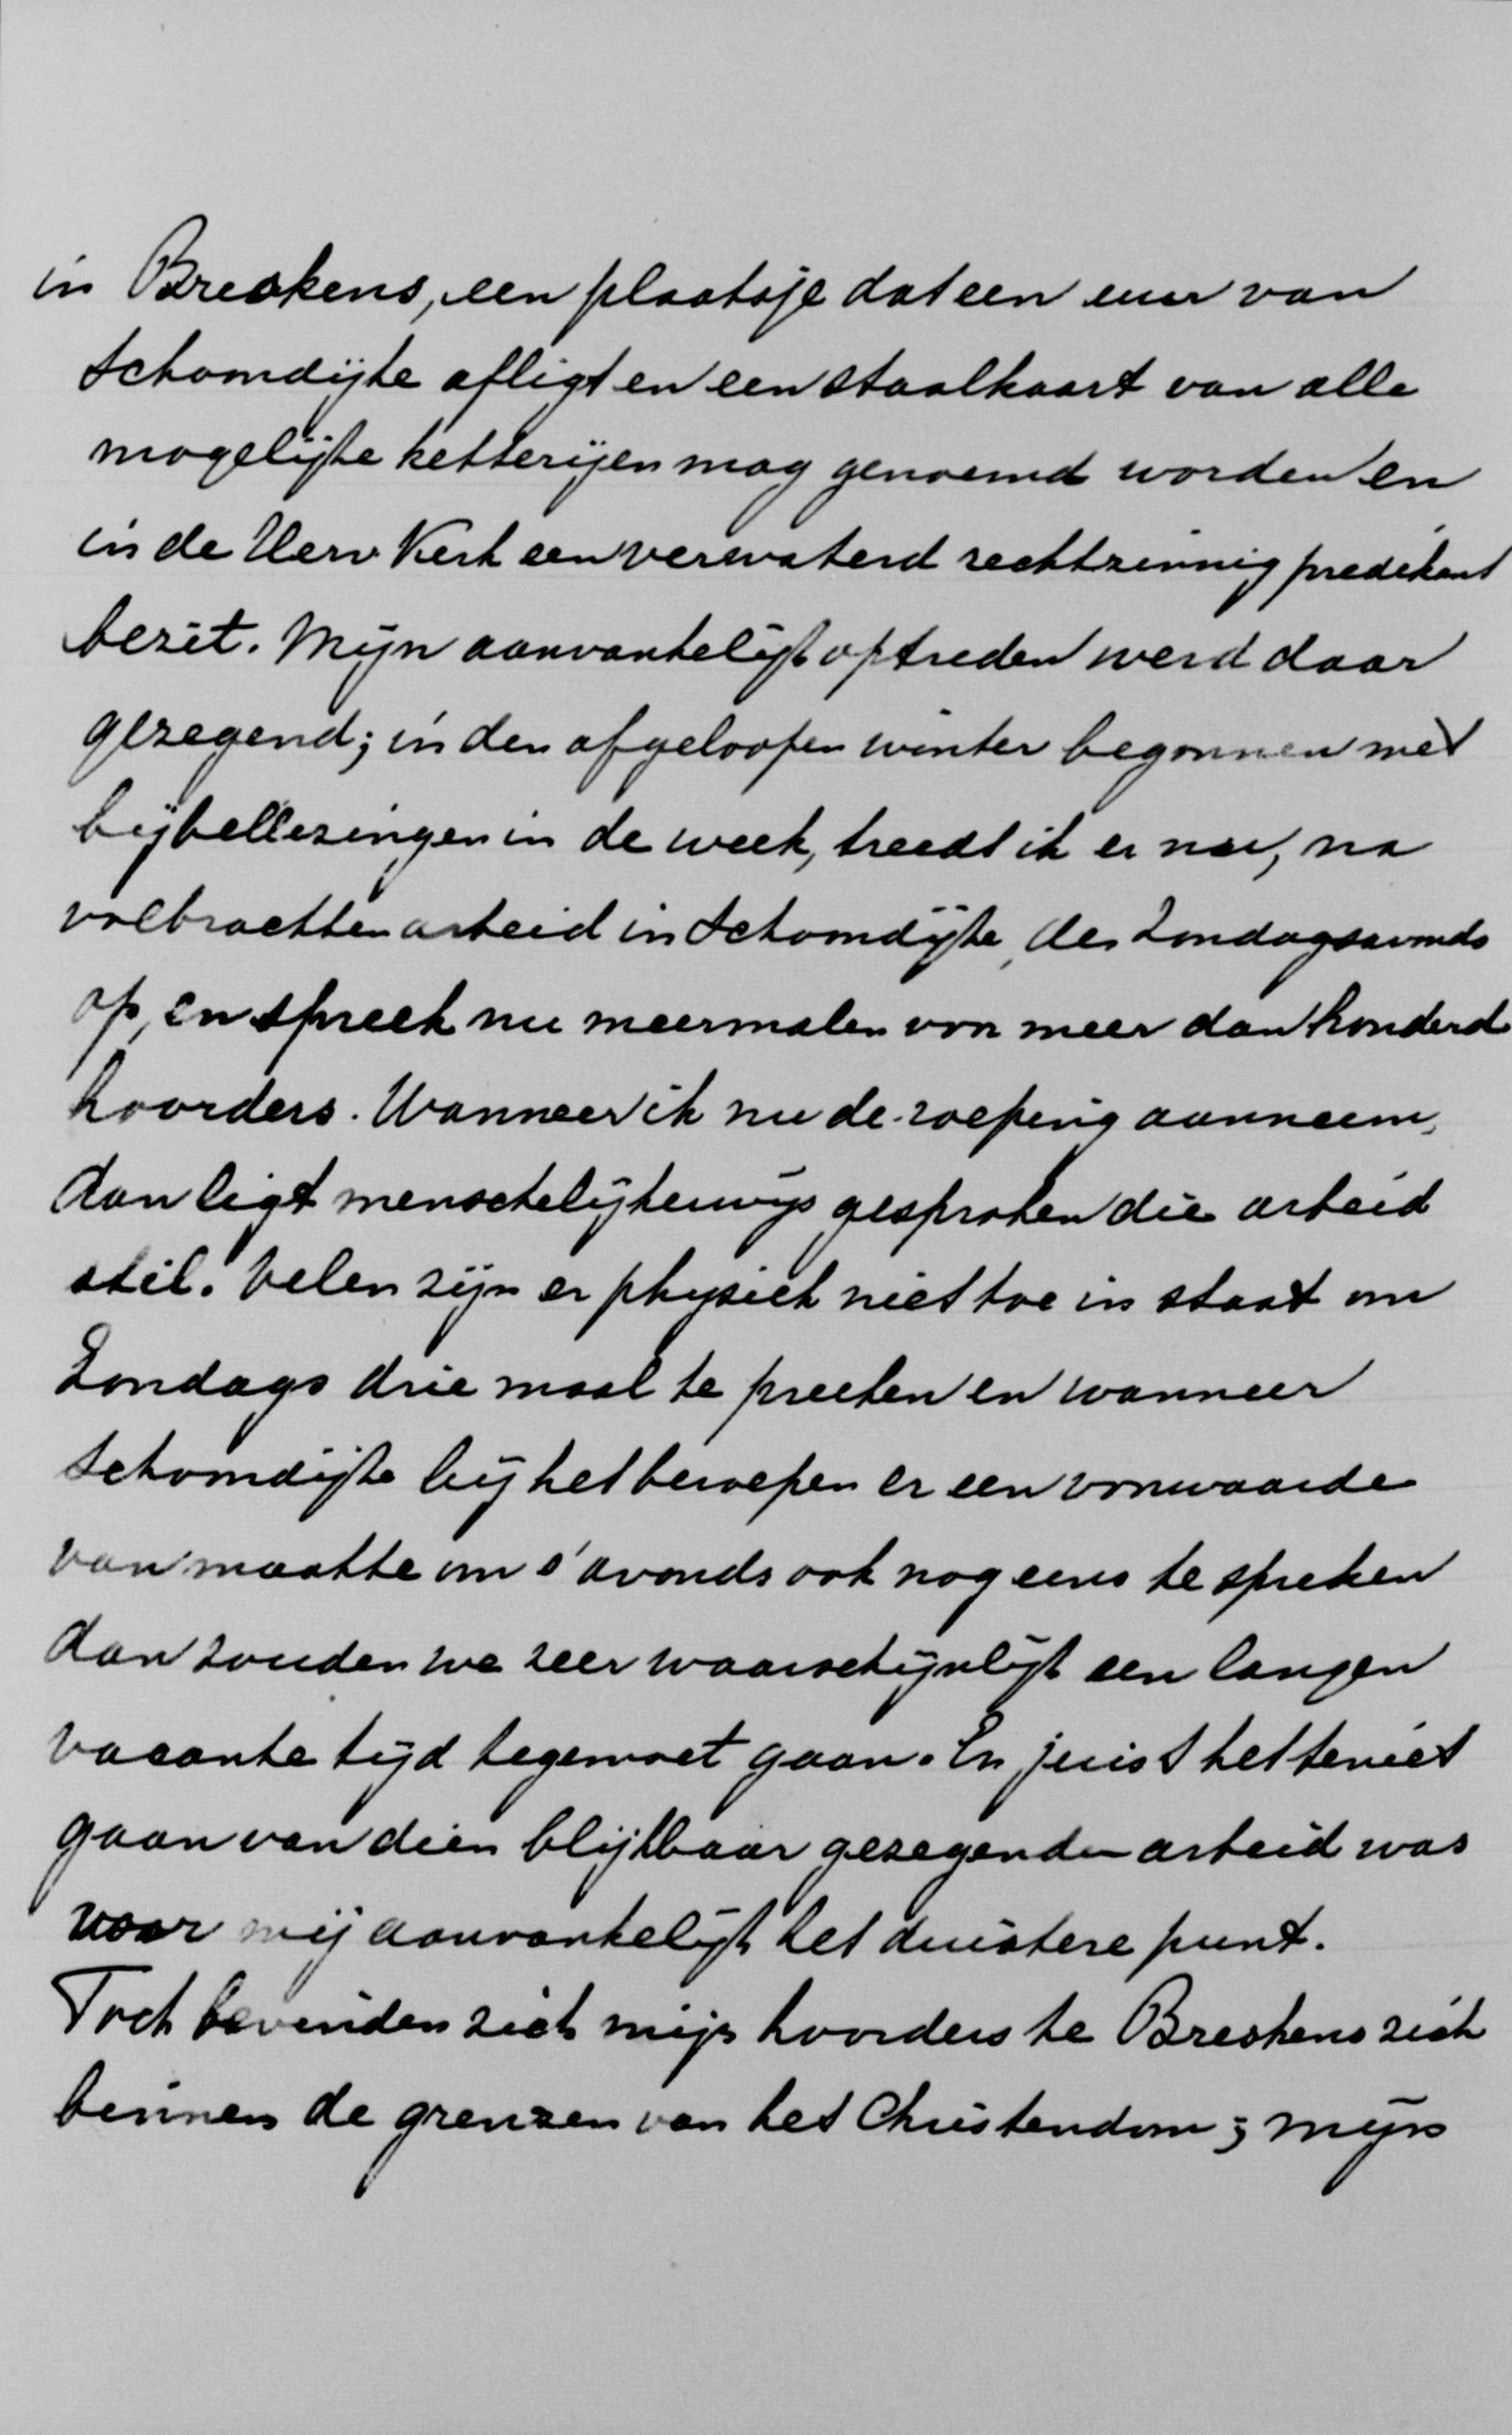 in Breskens, een plaatsje dat een uur van
Schoondijke afligt en een staalkaart van alle
mogelijke ketterijen mag genoemd worden en
in de Herv Kerk een verwaterd rechtzinnig predikant
bezit. Mijn aanvankelijk optreden werd daar
gezegend; in den afgeloopen winter begonnen met
bijbellezingen in de week, treedt ik er nu, na
volbrachten arbeid in Schoondijke, des Zondagsavonds
op, en spreek nu meermalen voor meer dan honderd
hoorders. Wanneer ik nu de roeping aanneem,
dan ligt menschelijkerwijs gesproken die arbeid
stil. Velen zijn er physiek niet toe in staat om
Zondags drie maal te preeken en wanneer
Schoondijke bij het beroepen er een voorwaarde
van maakte om s'avonds ook nog eens te spreken
dan zouden we zeer waarschijnlijk een langen
vacante tijd tegemoet gaan. En juist het teniet
gaan van dien blijkbaar gezegenden arbeid was
voor mij aanvankelijk het duistere punt.
Toch bevinden zich mijn hoorders te Breskens zich
binnen de grenzen van het Christendom; mijn